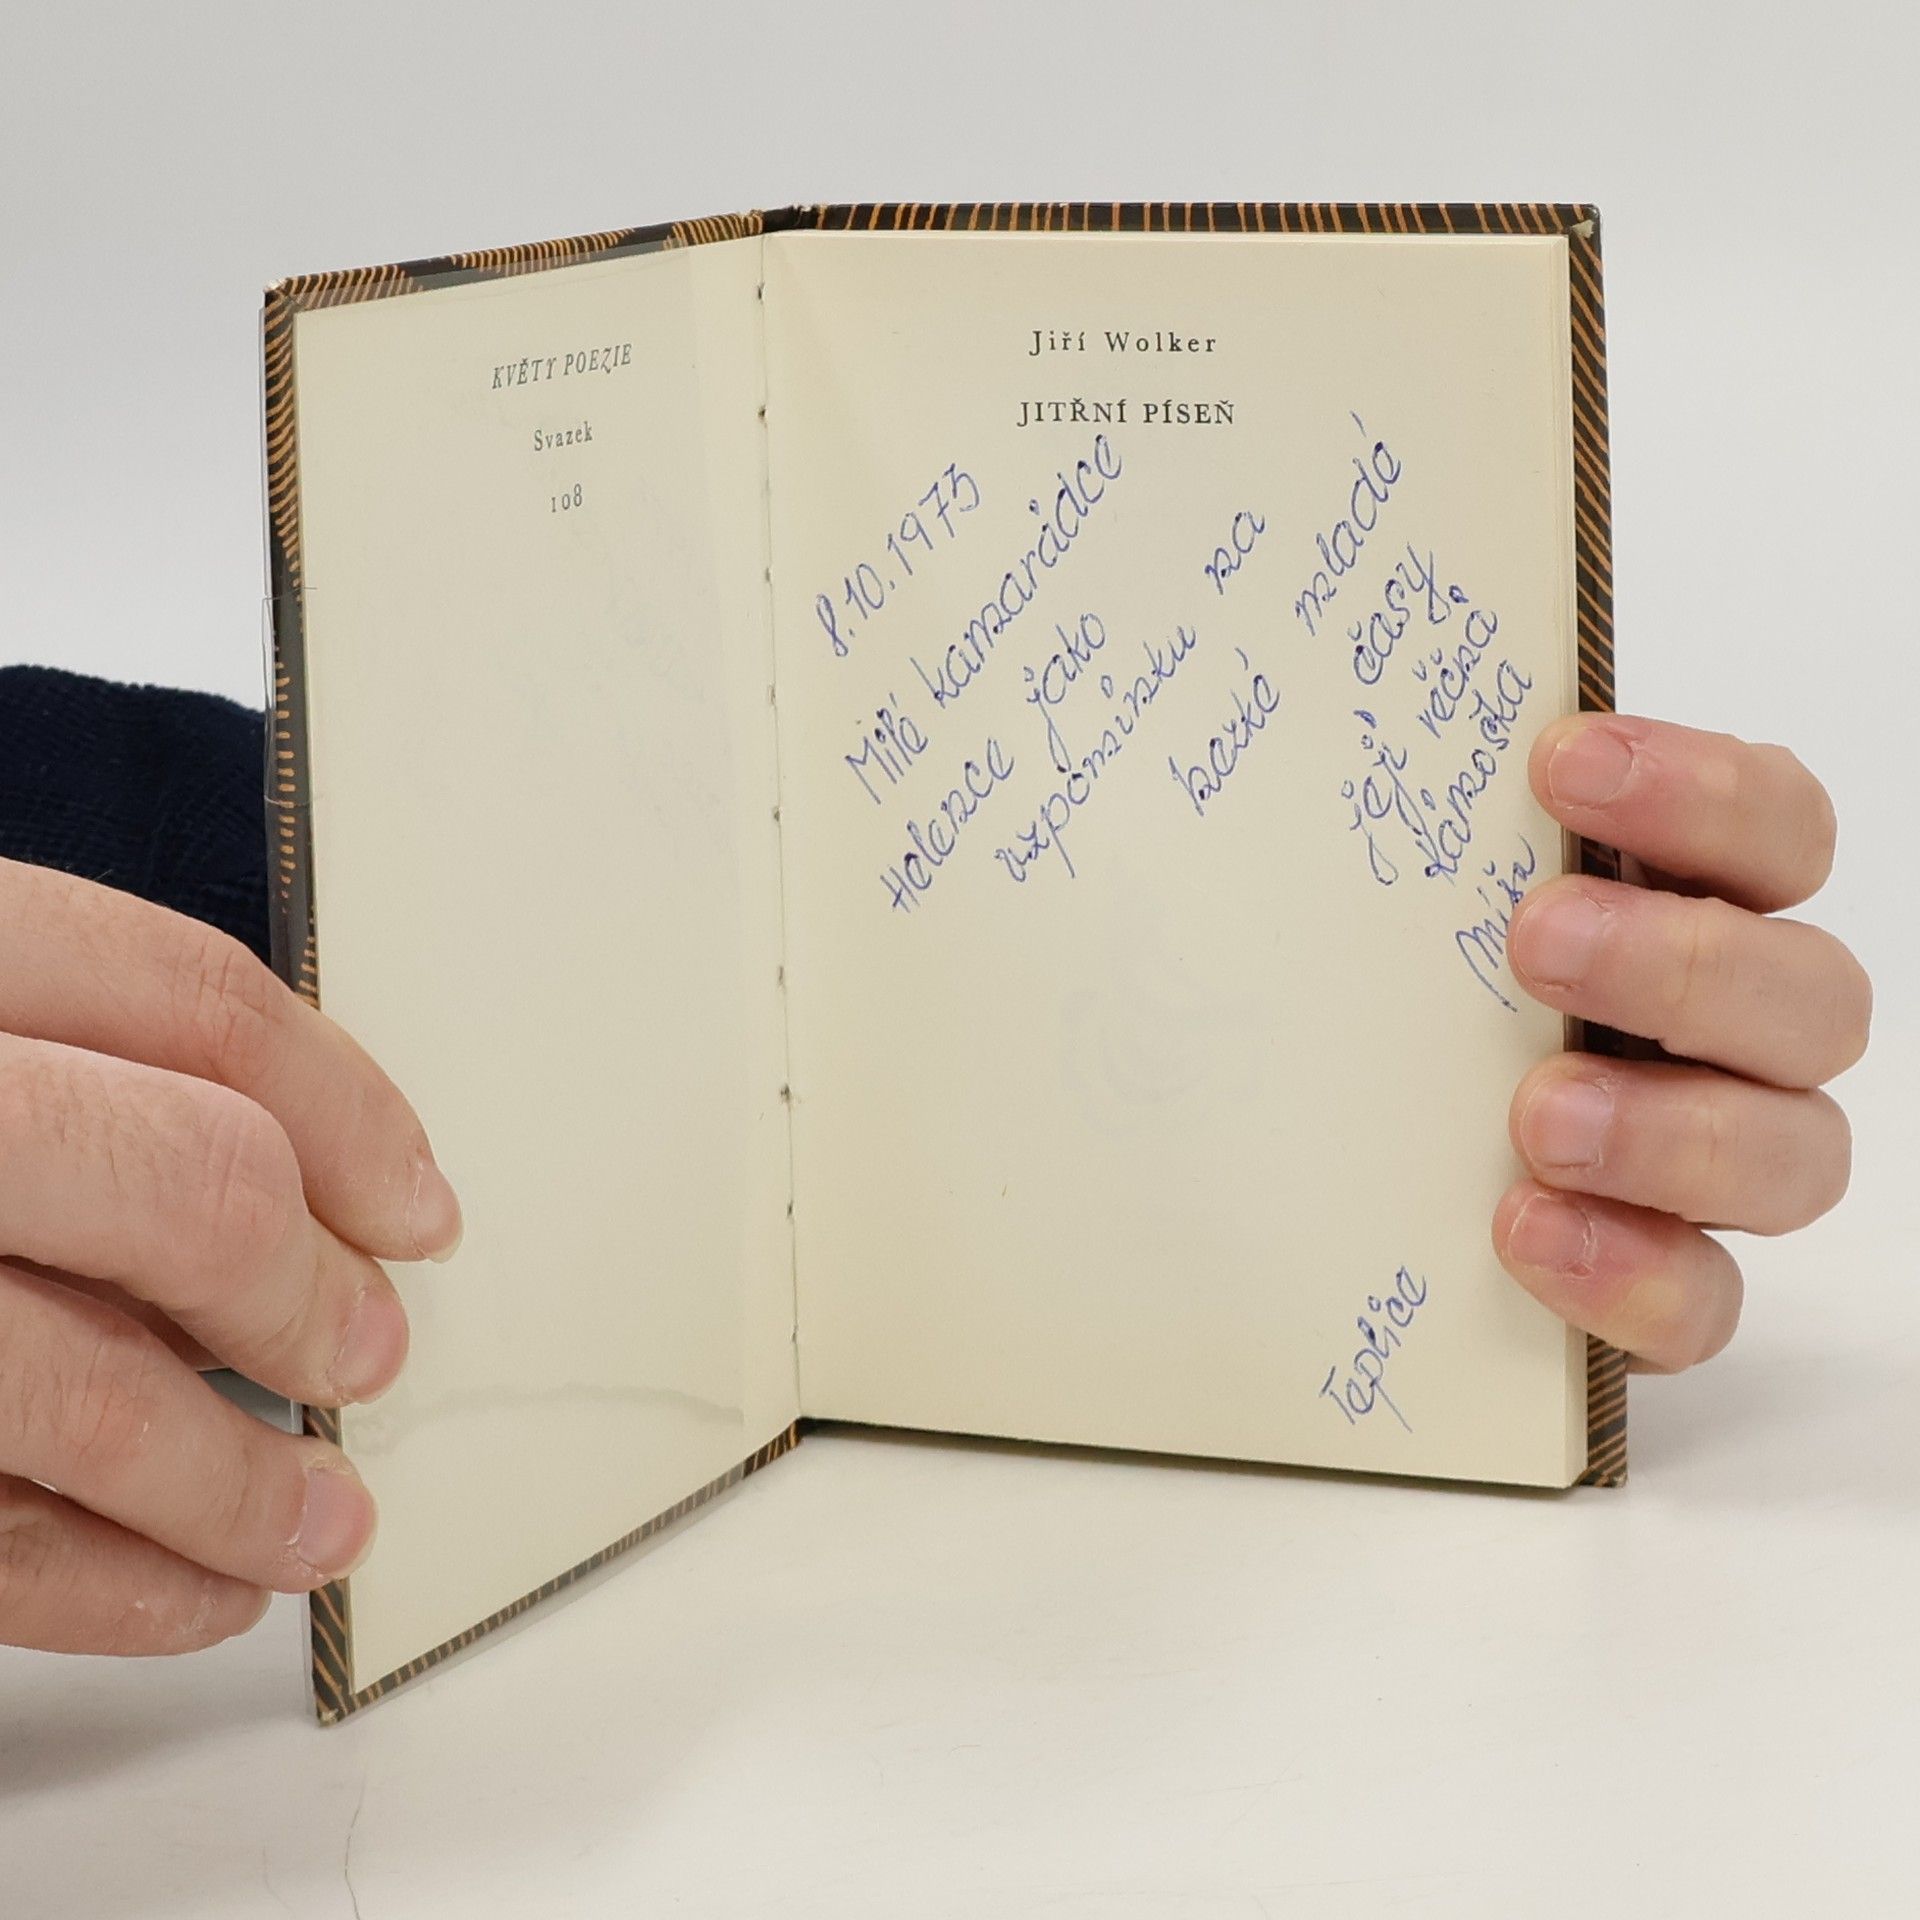 KVĚTY POEZIE
Svazek
108
Jiří Wolker
JITŘNÍ PÍSEŇ
8.10.1973
Milé kamarádce
Helence jako
vzpomínku na
hezké mladé
časy,
její věčná
kámoška
Míša
Teplice